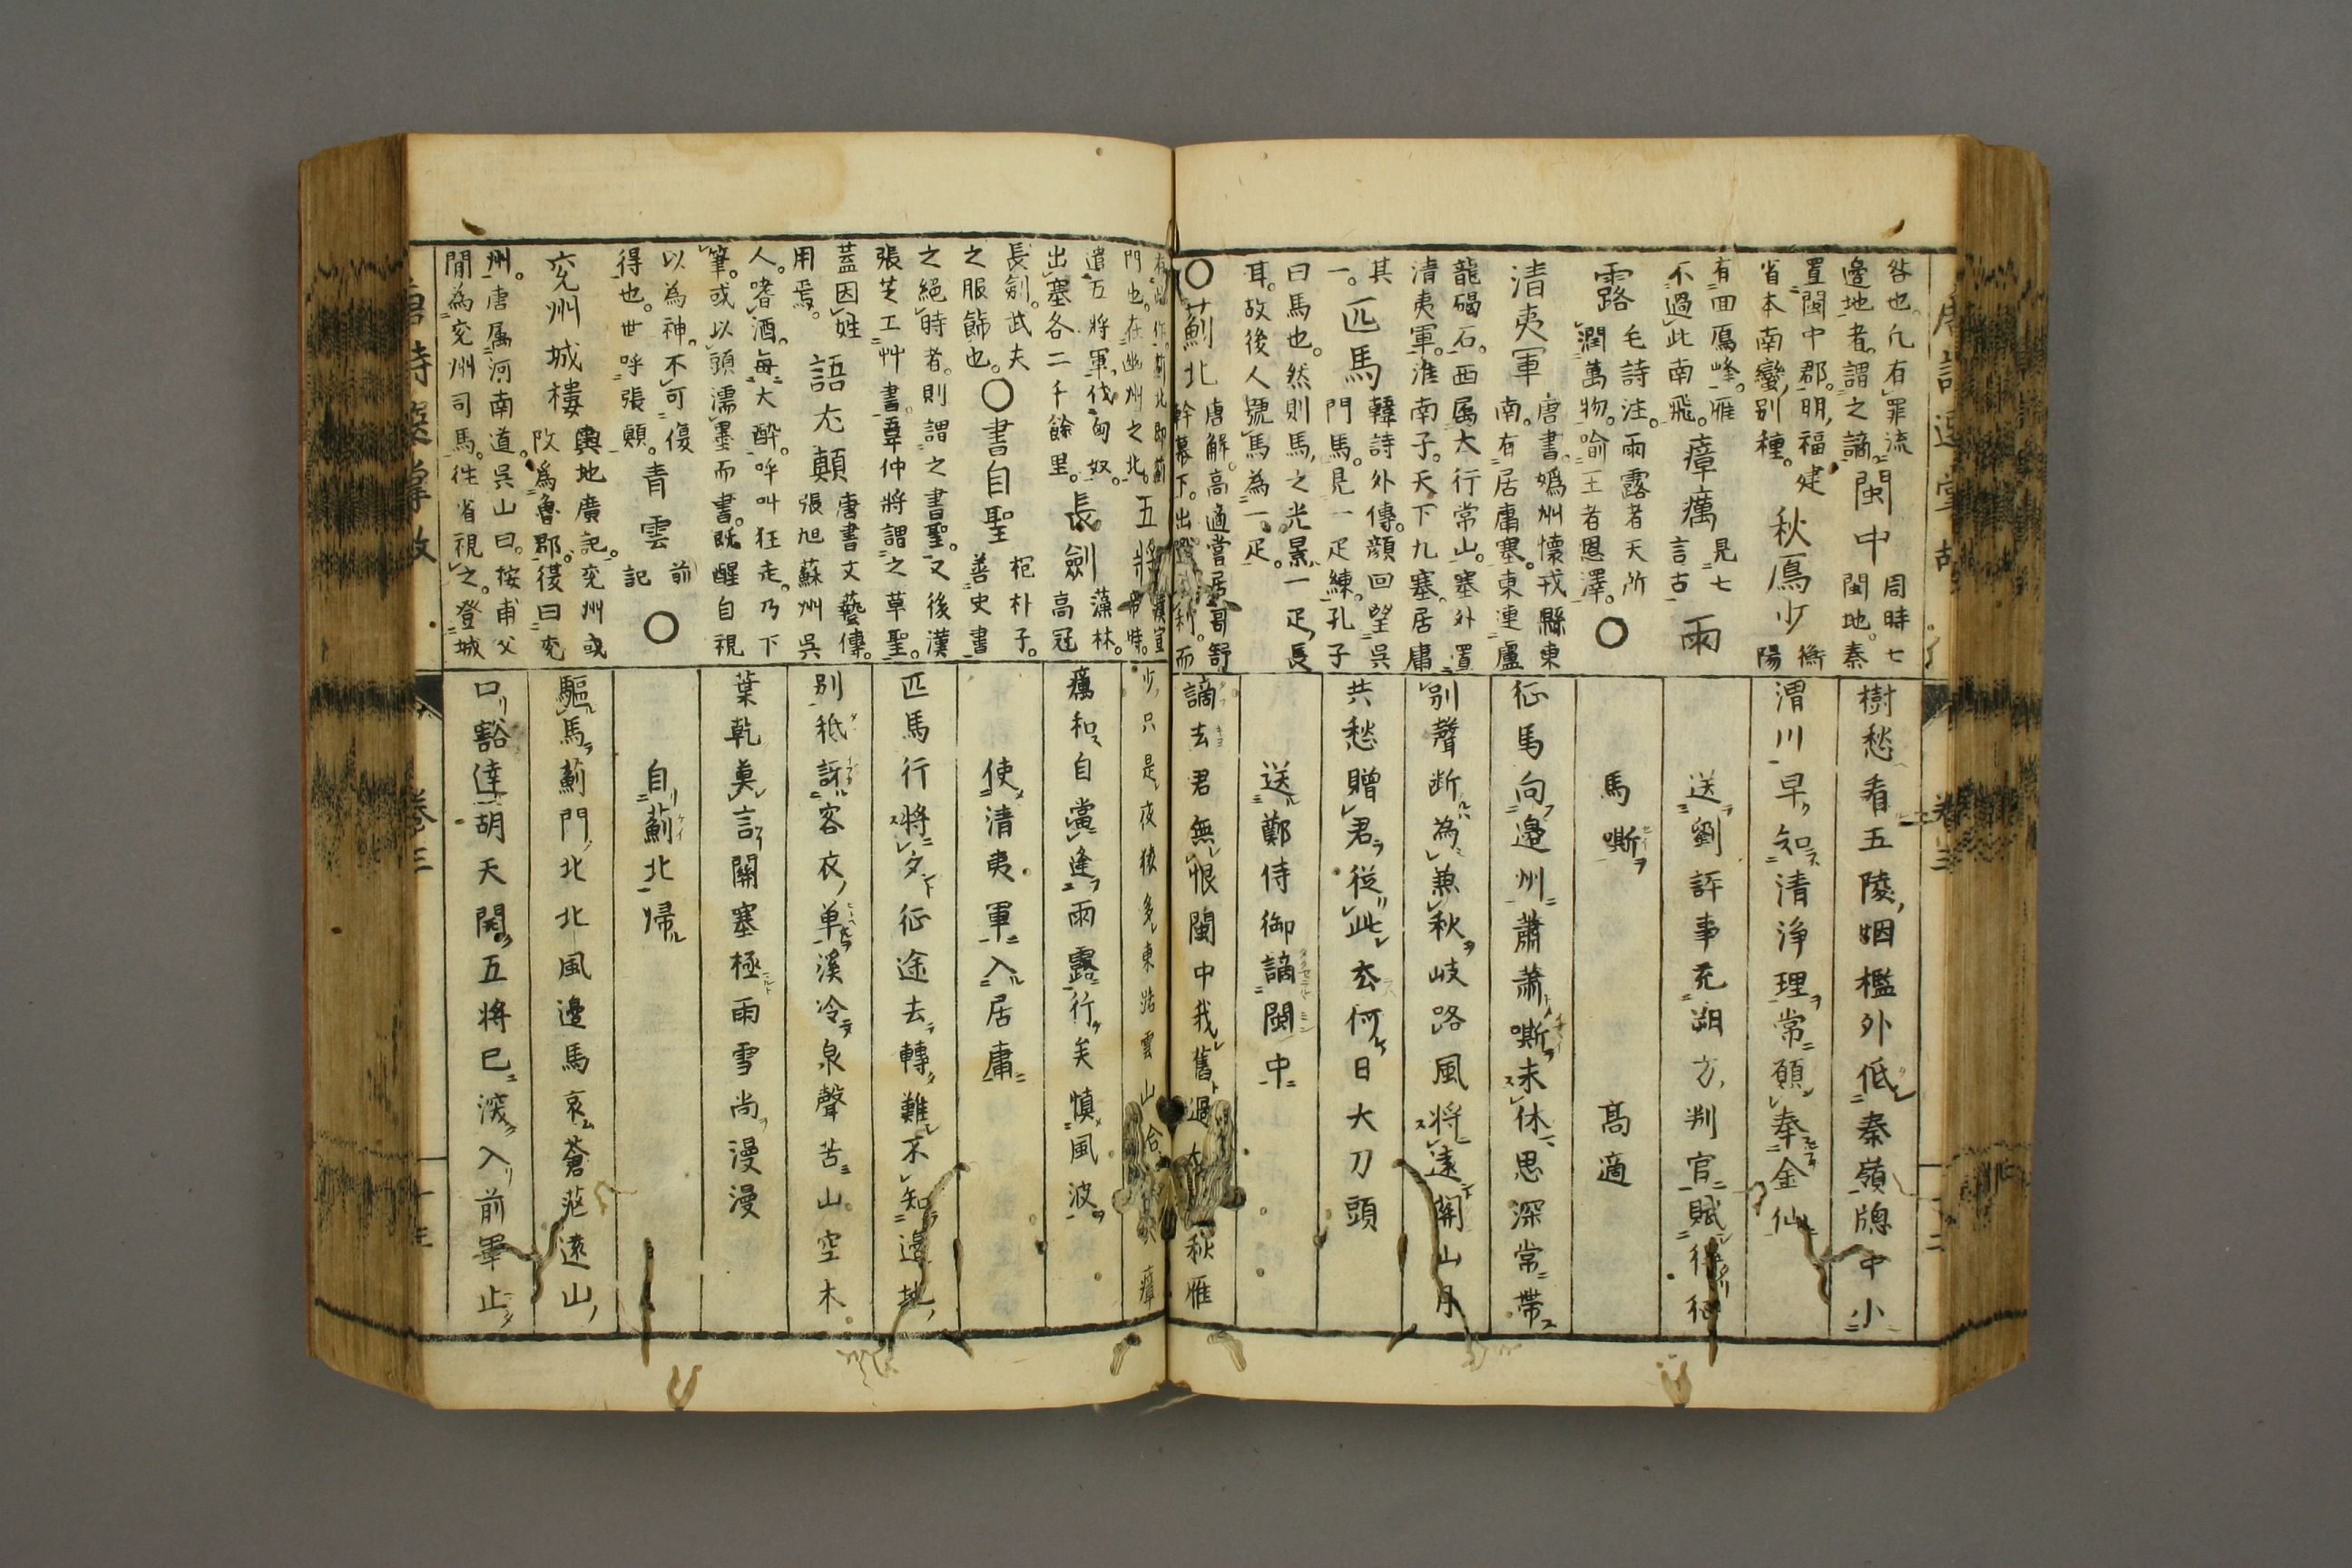 咎也。凡有罪流
邊地者。謂之謫。閩中 周時七
置閩中郡。明福建 閩地。秦
省本南蠻別種。秋鴈少 衡陽
有回鴈峰。雁
不過此南飛。瘴癘 見七言古 雨
露 毛詩注。雨露者天所
潤萬物。喻王者恩澤。〇
清夷軍 唐書。媯州懷戎縣東
南。有居庸塞。東連盧
龍碣石。西属大行常山。塞外置
清夷軍。淮南子。天下九塞。居庸
其一。匹馬 韓詩外傳。顔回望吳
門馬。見一疋練。孔子
曰馬也。然則馬之光景一疋長
耳。故後人號馬為一疋。
〇薊北 唐解。高適嘗居哥舒
幹幕下。出
門也。在幽州之北。五將 漢宣帝時。
遣五將軍。伐匈奴。
出塞各二千餘里。長劍 藻林。高冠
長劍。武夫
之服飾也。〇書自聖 枹朴子。善史書
之絕時者。則謂之書聖。又後漢
張芝工艸書。韋仲將謂之草聖。
蓋因姓
用焉。語尤顛 唐書文藝傳。
張旭蘇州吳
人。嗜酒。每大醉。呼叫狂走。乃下
筆。或以頭濡墨而書。既醒自視
以為神。不可復
得也。世呼張顛。青雲 前記 〇
兗州城樓 輿地廣記。兗州或
改爲魯郡。後曰兗
州。唐属河南道。吳山曰。按甫父
閒為兗州司馬。徃省視之。登城
樹愁看五陵烟檻外低秦嶺牕中小
渭川早知清淨理常願奉金仙
送劉評事充朔方判官賦得征
馬嘶 高適
征馬向邊州蕭蕭嘶未休思深常帶
別聲断為兼秋岐路風将遠關山月
共愁贈君從此去何日大刀頭
送鄭侍御謫閩中
謫去君無恨閩中我舊過大 秋雁
少只是夜猿多東路雲山合 瘴
癘和自當逢雨露行矣慎風波
使清夷軍入居庸
匹馬行將夕征途去轉難不知邊地
別秪訝客衣単溪冷泉聲苦山空木
葉乾莫言關塞極雨雪尚漫漫
自薊北歸
驅馬薊門北北風邊馬哀蒼茫遠山
口豁達胡天開五將已深入前軍止
卷三